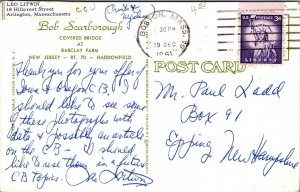 LEO LITWIN
18 Hillcrest Street
Arlington, Massachusetts
Bob Scarborough
COVERED BRIDGE AT
BARCLAY FARM
NEW JERSEY - RT. 70 - HADDONFIELD
BOSTON, MASS.
PM
19 DEC
U.S. POSTAGE
3¢
LIBERTY
POST CARD
Thank you for your offer of
Iowa & Oregon CB, I
should like to see some of
these photographs with
data & possibly an article
on the CB - I should
like to use them in a future
CB Topics. Leo Litwin
Mr. Paul Ladd
Box 91
Epping New Hampshire